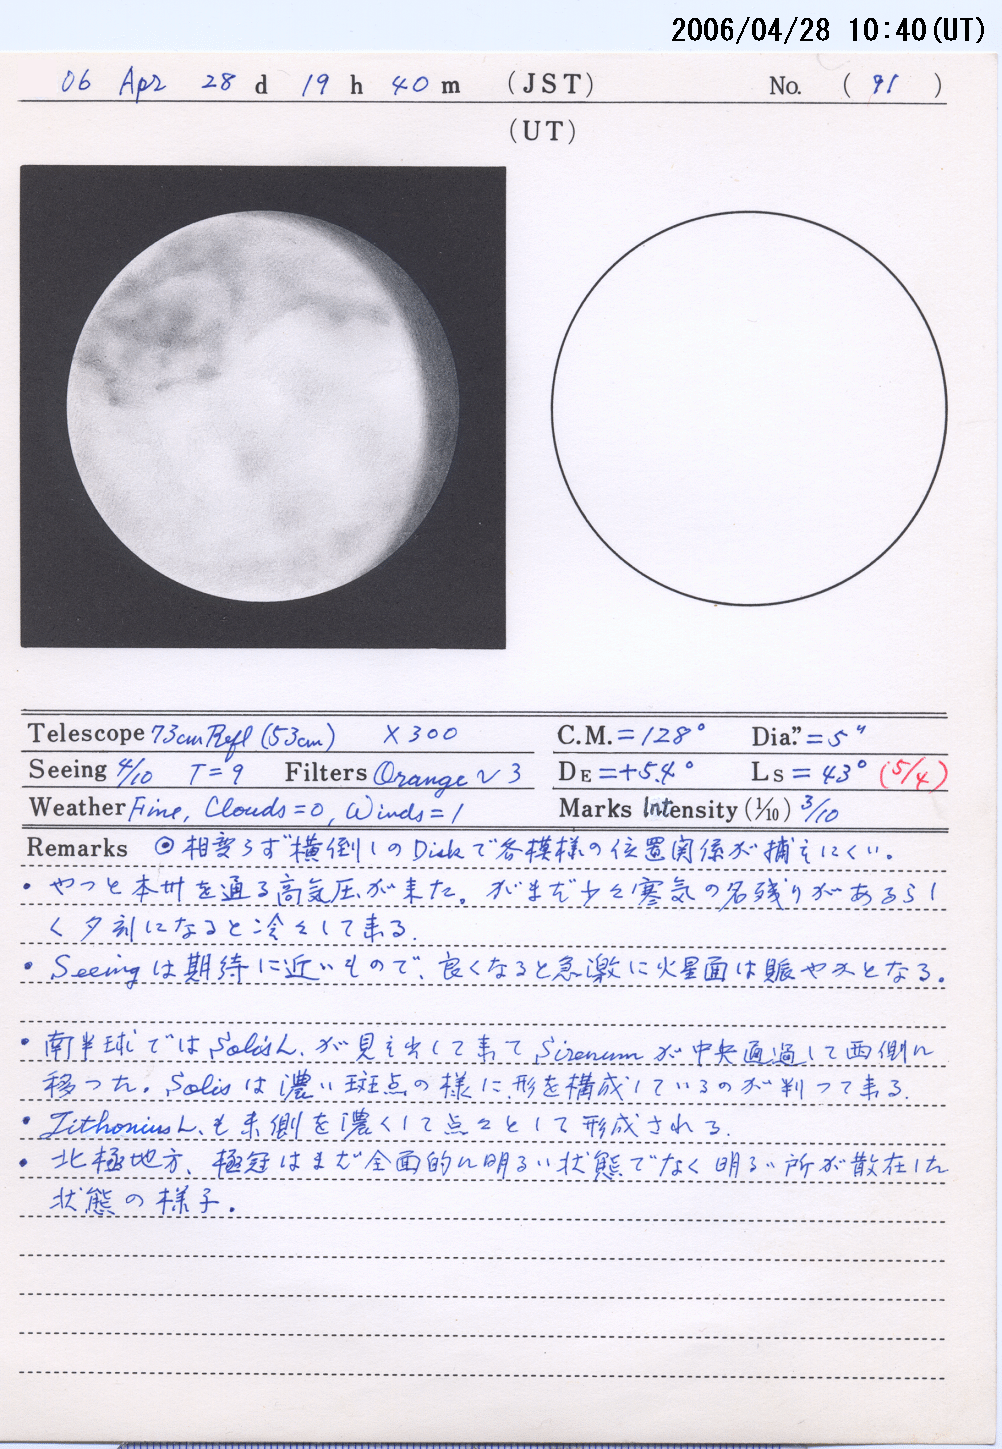 2006/04/28 10:40(UT)
06 Apr 28 d 19 h 40 m (JST) No. ( 91 )
(UT)
Telescope 73cm Refl (53cm) ×300 C.M.=128° Dia."=5"
Seeing 4/10 T=9 Filters Orange ~ 3 DE=+5.4° Ls=43° (5/4)
Weather Fine, Clouds=0, Winds=1 Marks Intensity (1/10) 3/10
Remarks ◎相変らず横倒しのDiskで各模様の位置関係が捕えにくい。
・やっと本州を通る高気圧が来た。がまだ少々寒気の名残りがあるらし
く夕刻になると冷々して来る.
・Seeingは期待に近いもので、良くなると急激に火星面は賑やかとなる.
・南半球ではSolis L.が見え出して来てSirenumが中央通過して西側に
移った。Solisは濃い斑点の様に形を構成しているのが判って来る.
・Tithonius L.も東側を濃くして点々として形成される.
・北極地方、極冠はまだ全面的に明るい状態でなく明るい所が散在した
状態の様子.